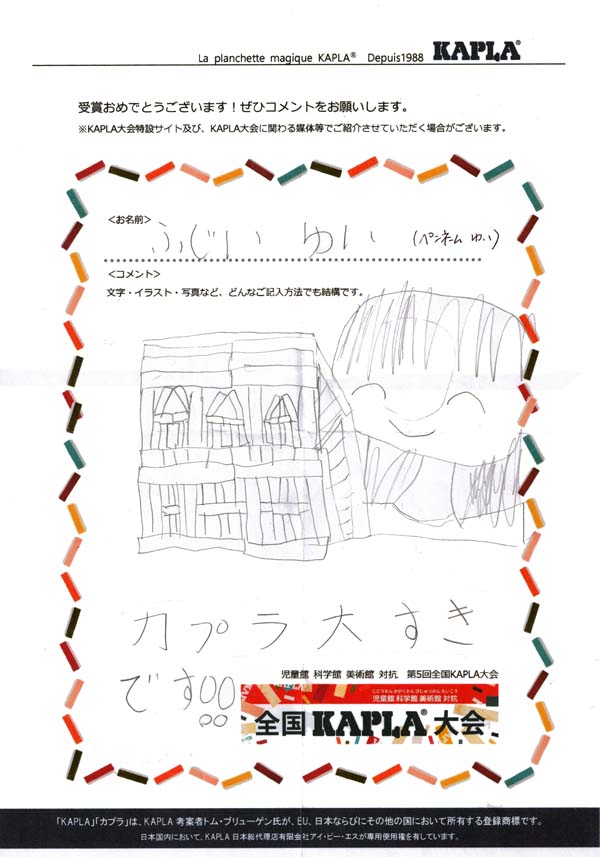 La planchette magique KAPLA® Depuis1988 KAPLA®
受賞おめでとうございます！ぜひコメントをお願いします。
※KAPLA大会特設サイト及び、KAPLA大会に関わる媒体等でご紹介させていただく場合がございます。
<お名前>
ふじい ゆい (ペンネーム ゆい)
<コメント>
文字・イラスト・写真など、どんなご記入方法でも結構です。
カプラ大すき
です!!
児童館 科学館 美術館 対抗 第5回全国KAPLA大会
じどうかんかがくかんびじゅつかんたいこう
児童館 科学館 美術館 対抗
全国KAPLA®大会
「KAPLA」「カプラ」は、KAPLA 考案者トム・ブリューゲン氏が、EU、日本ならびにその他の国において所有する登録商標です。
日本国内において、KAPLA 日本総代理店有限会社アイ・ピー・エスが専用使用権を有しています。